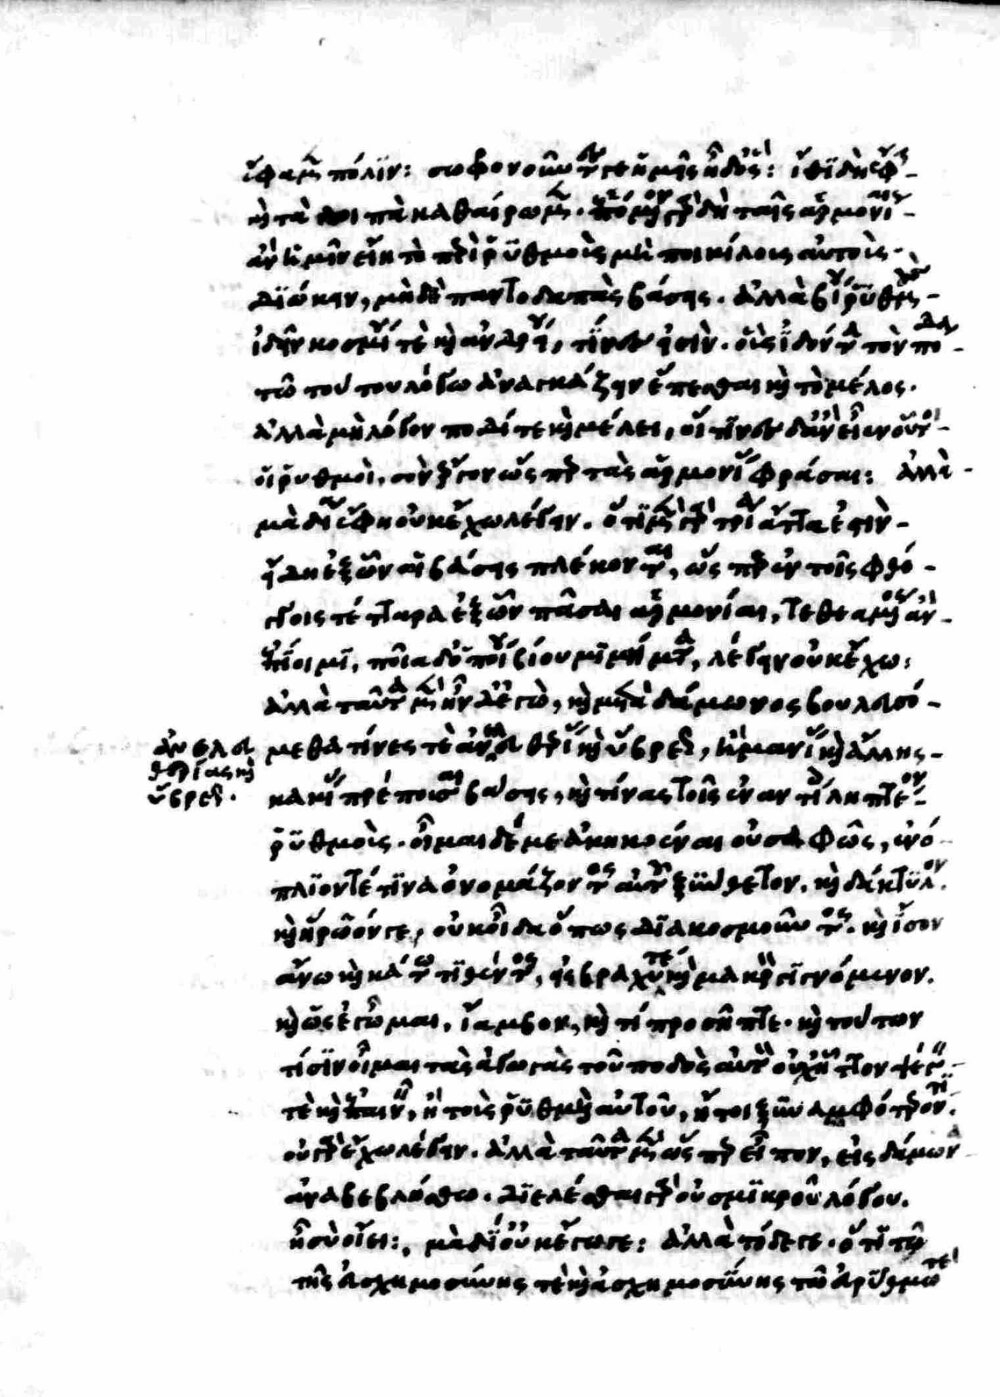 ἔφαμεν πόλιν: σωφρονοῦντές γε ἡμεῖς ἦ δ' ὅς: ἴθι δὴ ἔφην-
καὶ τὰ λοιπὰ καθαίρωμεν. ἑπόμενον γὰρ δὴ ταῖς ἁρμονίαις-
ἂν ἡμῖν εἴη τὸ περὶ ῥυθμοὺς μὴ ποικίλους αὐτοὺς-
διώκειν, μηδὲ παντοδαπὰς βάσεις. ἀλλὰ βίου ῥυθμοὺς-
ἰδεῖν κοσμίου τὲ καὶ ἀνδρείου, τίνες εἰσὶν. οὓς ἰδόντα τὸν πόδα-
τῶ τοῦ του λόγω ἀναγκάζειν ἕπεσθαι καὶ τὸ μέλος.
ἀλλὰ μὴ λόγον ποδί τε καὶ μέλει, οἵ τινες δ' ἂν εἶεν οὗτοι-
οἱ ῥυθμοὶ, σὸν ἔργον ὥσπερ τὰς ἁρμονίας φράσαι: ἀλλὰ-
μὰ δί' ἔφη οὐκ ἔχω λέγειν. ὅτι μὲν γὰρ τρία ἄττα ἐστὶν-
εἴδη ἐξ ὧν αἱ βάσεις πλέκονται, ὥσπερ ἐν τοῖς φθό-
γγοις τέτταρα ἐξ ὧν πᾶσαι ἁρμονίαι, τεθεαμένος ἂν-
εἴποιμι, ποῖα δ' ὁποίου βίου μιμήματα, λέγειν οὐκ ἔχω:
ἀλλὰ ταῦτα μὲν ἦν δ' ἐγὼ, καὶ μετὰ δάμωνος βουλευσό-
μεθα τίνες τὲ ἀνελευθερίας καὶ ὕβρεως, ἢ μανίας καὶ ἄλλης-
ἀνελευ
θερίας καὶ
ὕβρεως.
κακίας πρέπουσαι βάσεις, καὶ τίνας τοῖς ἐναντίοις λειπτέον-
ῥυθμοὺς. οἶμαι δέ με ἀκηκοέναι οὐ σαφῶς, ἐνό-
πλιόν τέ τινα ὀνομάζοντος αὐτοῦ ξύνθετον. καὶ δάκτυλον.
καὶ ἡρῶόν γε, οὐκ οἶδα ὅπως διακοσμοῦντος. καὶ ἴσον
ἄνω καὶ κάτω τιθέντος, εἰς βραχύ τε καὶ μακρὸν γιγνόμενον.
καὶ ὡς ἐγῶμαι, ἴαμβον, καὶ τί προσῆπτε. καὶ τούτων
τισὶν οἶμαι τὰς ἀγωγὰς τοῦ ποδὸς αὐτὸν οὐχ ἧττον ψέγειν-
τὲ καὶ ἐπαινεῖν, ἢ τοὺς ῥυθμοὺς αὐτοὺς, ἤτοι ξυναμφότερόν τι.
οὐ γὰρ ἔχω λέγειν. ἀλλὰ ταῦτα μὲν ὥσπερ εἶπον, εἰς δάμωνα
ἀναβεβλήσθω. διελέσθαι γὰρ οὐ σμικροῦ λόγου.
ἢ σὺ οἴει: μὰ δί' οὐκ ἔγωγε: ἀλλὰ τόδε γε. ὅτι τὸ
τῆς εὐσχημοσύνης τὲ καὶ ἀσχημοσύνης τῶ εὐρύθμω τε